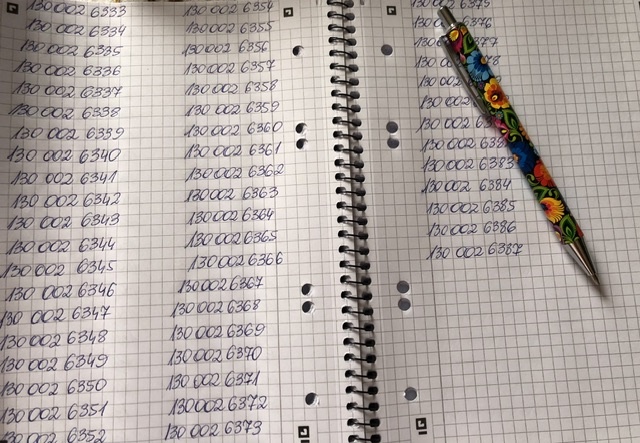 130 002 6333
130 002 6334
130 002 6335
130 002 6336
130 002 6337
130 002 6338
130 002 6339
130 002 6340
130 002 6341
130 002 6342
130 002 6343
130 002 6344
130 002 6345
130 002 6346
130 002 6347
130 002 6348
130 002 6349
130 002 6350
130 002 6351
130 002 6352
130 002 6354
130 002 6355
130 002 6356
130 002 6357
130 002 6358
130 002 6359
130 002 6360
130 002 6361
130 002 6362
130 002 6363
130 002 6364
130 002 6365
130 002 6366
130 002 6367
130 002 6368
130 002 6369
130 002 6370
130 002 6371
130 002 6372
130 002 6373
130 002 6375
6376
130
130
130 002
130 002
130 002
130 002
130 002 6383
130 002 6384
130 002 6385
130 002 6386
130 002 6387